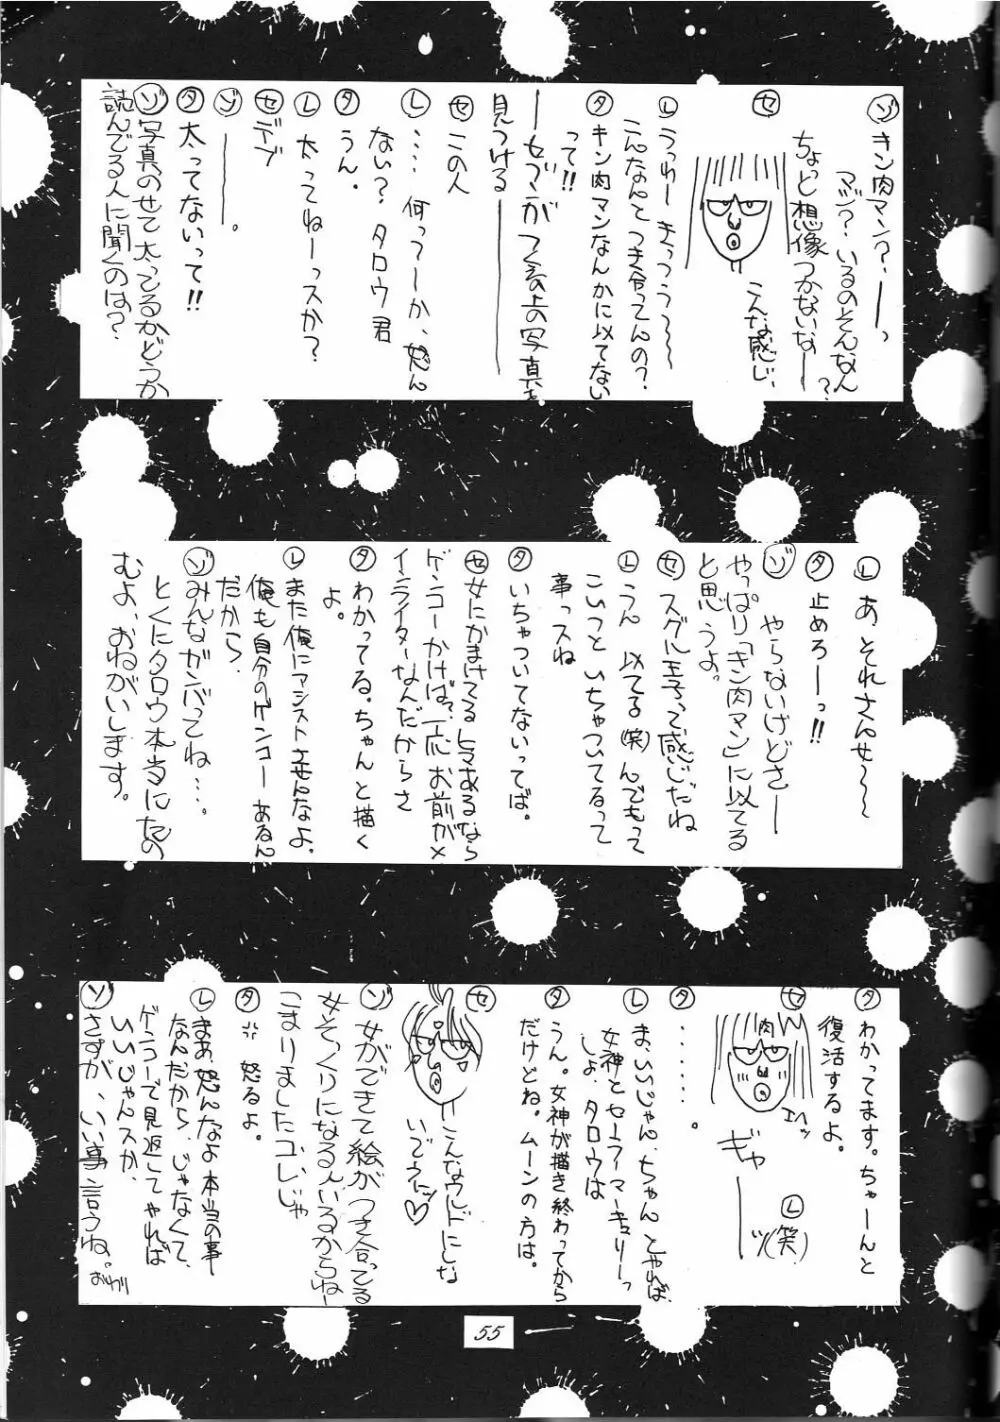 ゾ キン肉マン?・―っ
マジ?いるのそんなん
ちょっと想像つかないなー?
セ
こんな感じ、
レ うっわー きっつぅ～～
こんなんとつき合ってんの?
タ キン肉マンなんかに似てない
って!!
見つける
セ この人
レ ‥‥何ってーか、怒ん
ない?タロウ君
タ うん。
レ 太ってねーっスか?
セ デブ
ゾ ――。
タ 太ってないって!!
ゾ 写真のせて太ってるかどうか
読んでる人に聞くのは?
レ あ それさんせ～～
タ 止めろーっ!!
ゾ やらないけどさー
やっぱり「キン肉マン」に似てる
と思うよ。
セ スグル王子って感じだね
レ うん 以てる(笑)んでもって
こいつといちゃついてるって
事っスね
タ いちゃついてないってば。
セ 女にかまけてるヒマあるなら
ゲンコーかけば?一応お前がメ
インライターなんだからさ
タ わかってる。ちゃんと描く
よ。
レ また俺にアシストさせんなよ。
俺も自分のゲンコーあるん
だから。
ゾ みんなガンバってね‥‥。
とくにタロウ本当にたの
むよ、おねがいします。
タ わかってます。ちゃーんと
復活するよ。
セ
肉
エヘッ
ギャーッ
レ (笑)
タ ‥‥‥。
レ ま、いいじゃん、ちゃんとやれば
女神とセーラーマーキュリーっ
しょ、タロウは
タ うん。女神が描き終わってから
だけどね。ムーンの方は。
セ
こんなウルドにしな
いでネッ♡
ゾ 女ができて絵がつき合ってる
女そっくりになる人いるからねー
こまりましたコレじゃ
タ 怒るよ。
レ まあ、怒んなよ本当の事
なんだから、じゃなくて、
ゲンコーで見返してやれば
いいじゃんスか、
ゾ さすが、いい事言うね。
おわり
55